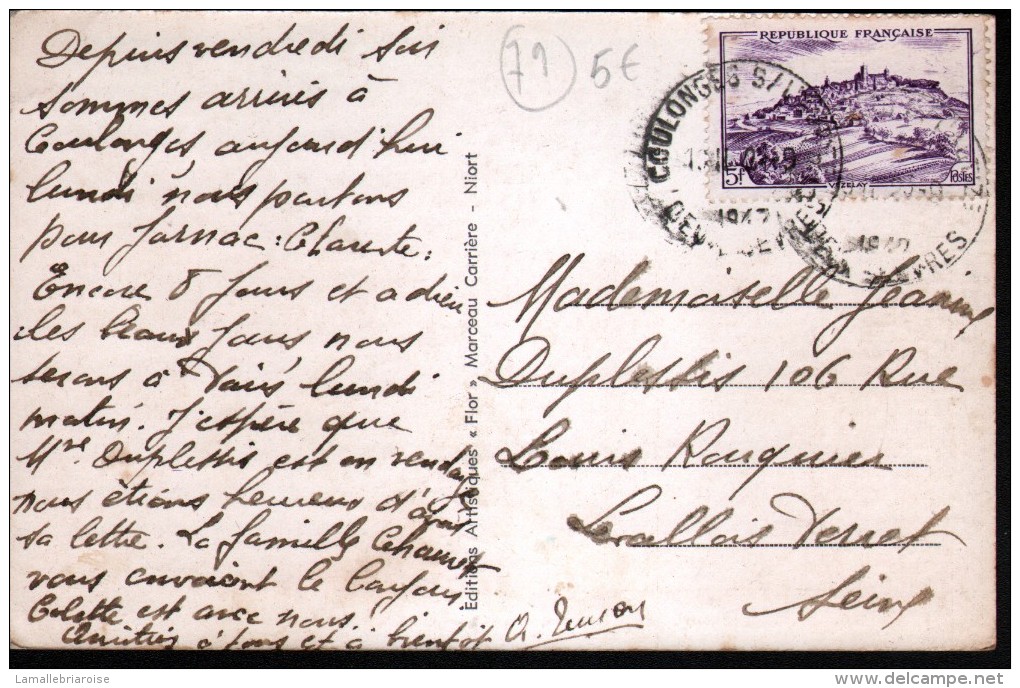 Depuis vendredi soir
sommes arrivés à
Coulonges aujourd'hui
lundi nous partons
pour Jarnac : Charente :
Encore 8 jours et adieu
les beaux jours nous
serons à Paris lundi
matin. J'espère que
Mre Duplessis est en
nous étions heureux d'
sa lettre. La famille
vous envoient le bonjour
Colette est avec nous.
Amitiés à tous et à bientôt
79
5€
Editions Artistiques « Flor » Marceau Carrière - Niort
REPUBLIQUE FRANÇAISE
5F
VEZELAY
Postes
COULONGES S/L
DEUX-SEVRES
1947
Mademoiselle Jeanine
Duplessis 106 Rue
Louis Rouquier
Levallois Perret
Seine
© Lamallebriaroise